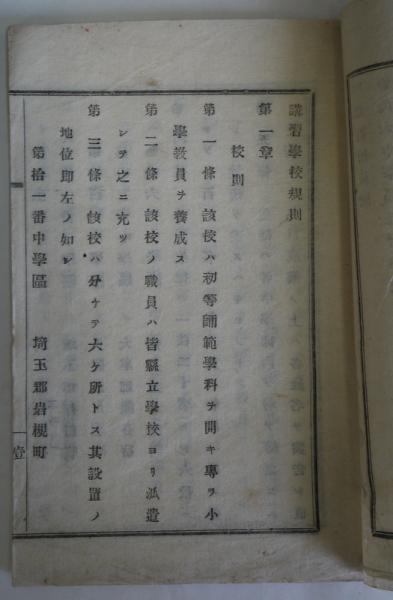 講習學校規則
第一章
校則
第一條 該校ハ初等師範學科ヲ開キ專ラ小
學教員ヲ養成ス
第二條 該校ノ職員ハ皆縣立學校ヨリ派遣
シテ之ニ充ツ
第三條 該校ハ分ケテ六ケ所トス其設置ノ
地位即左ノ如シ
第拾一番中學區 埼玉郡岩槻町
壹